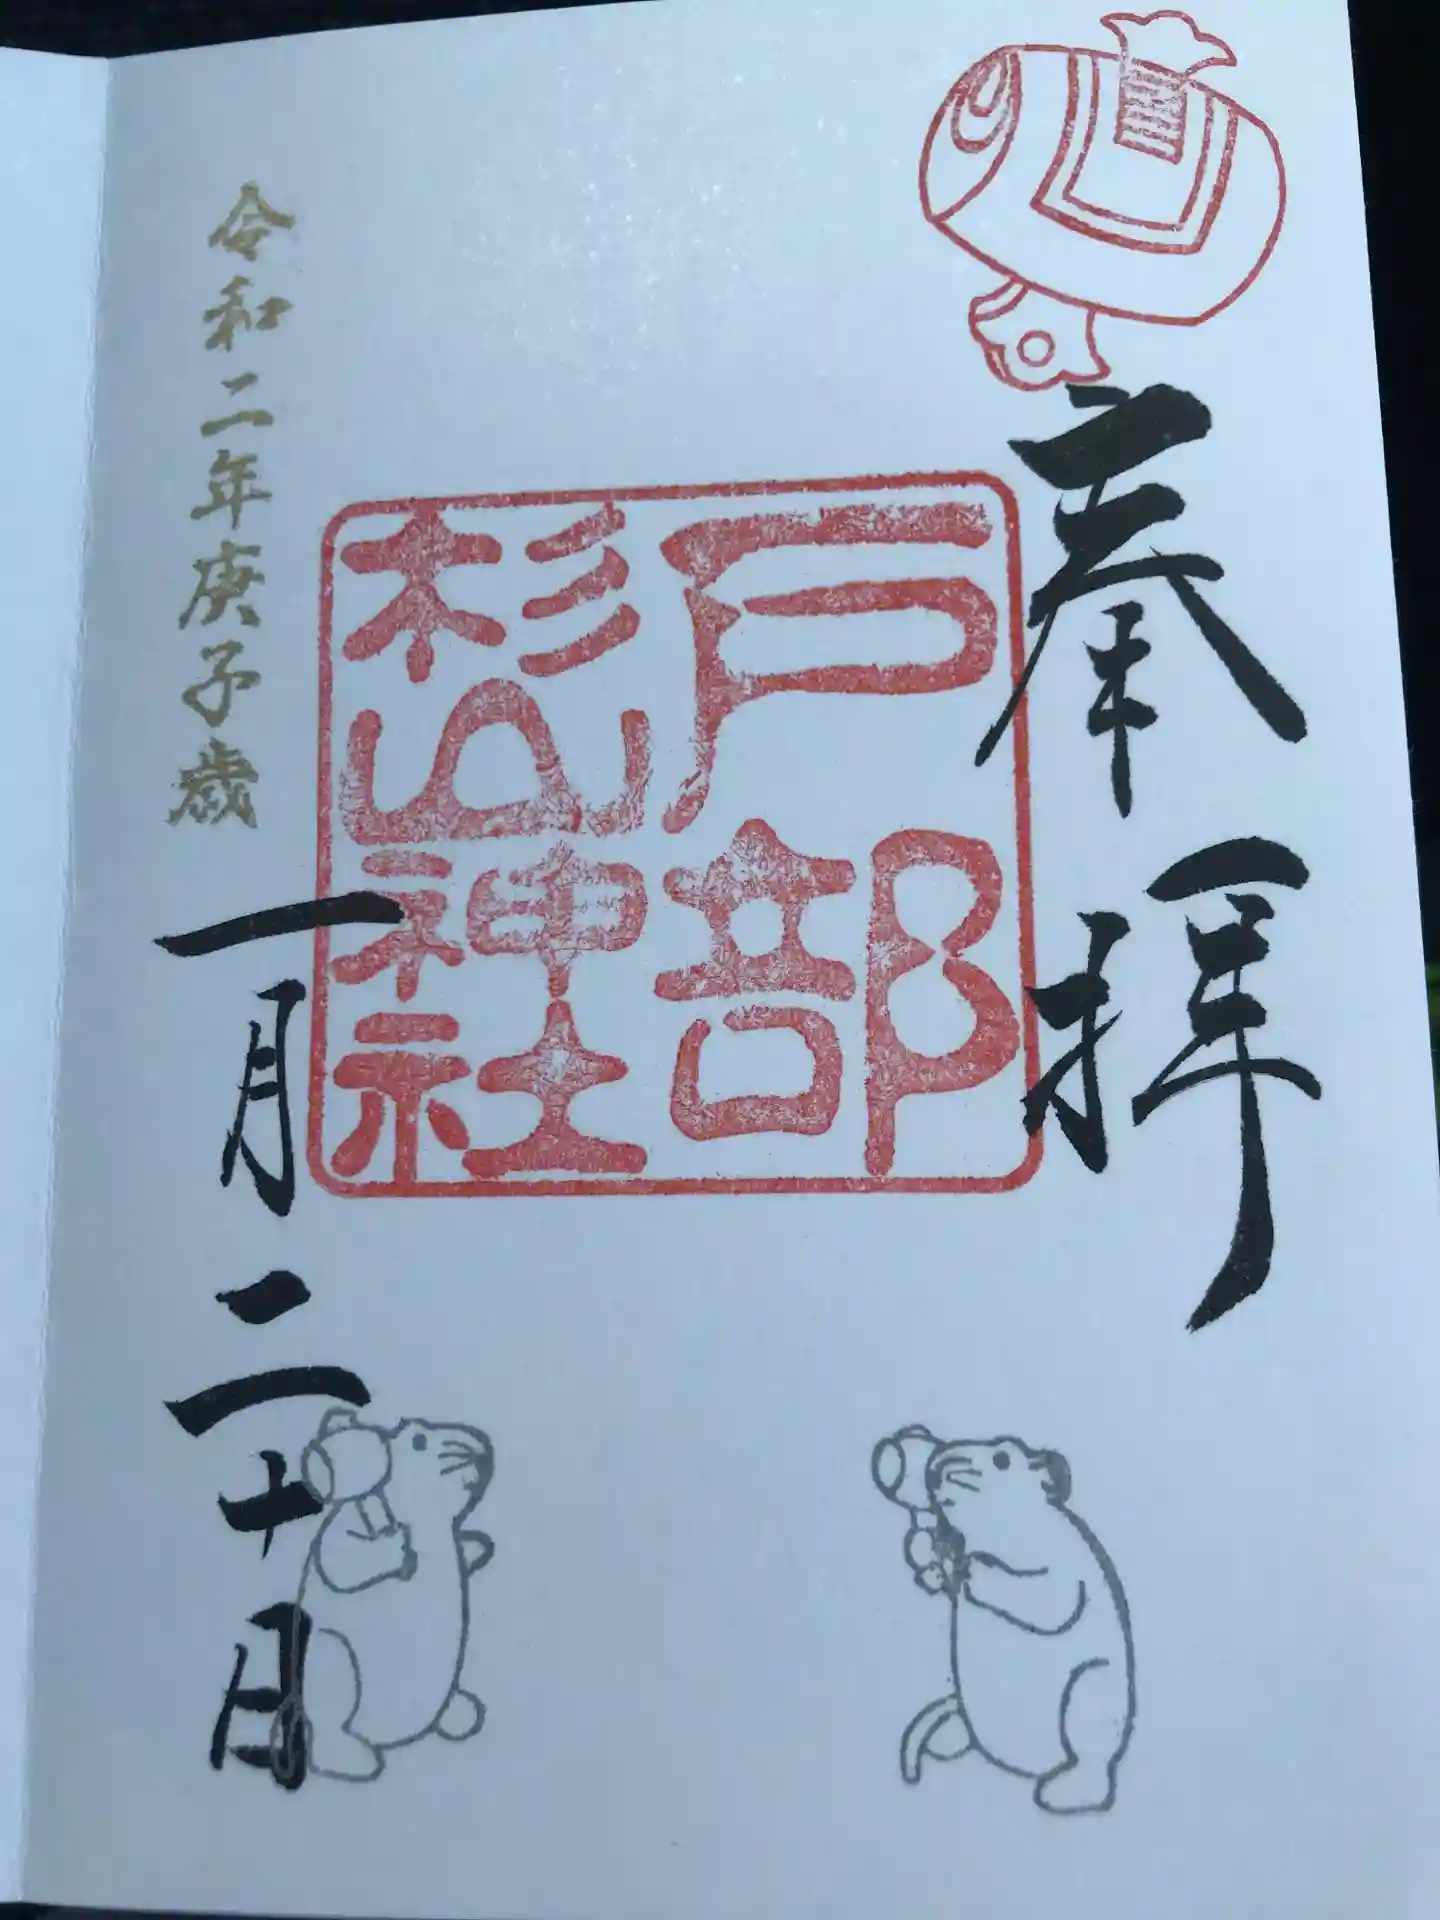 奉拝
戸部
杉山神社
令和二年庚子歳
一月二十日